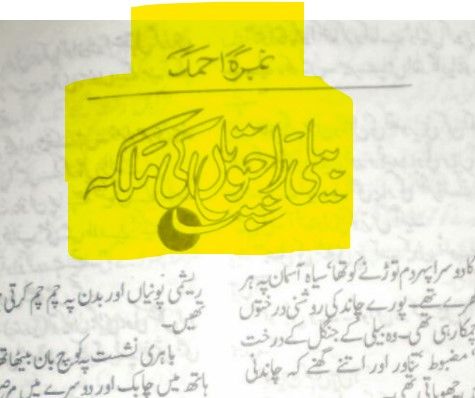 نمرہ احمد
بیلی راجپوتاں کی ملکہ
سرا پہر دم توڑنے کو تھا سیاہ آسمان پہ ہر
رے تھے۔ پورے چاند کی روشنی درختوں
رہی تھی۔ وہ بیلی کے جنگل کے درخت
مضبوط تناور اور اتنے گھنے کہ چاندنی
ریشمی پونیاں اور بدن پہ چم چم کرتی
تھیں۔
باہری نشست پہ کوچ بان بیٹھا تھا
ہاتھ میں چابک اور دوسرے میں